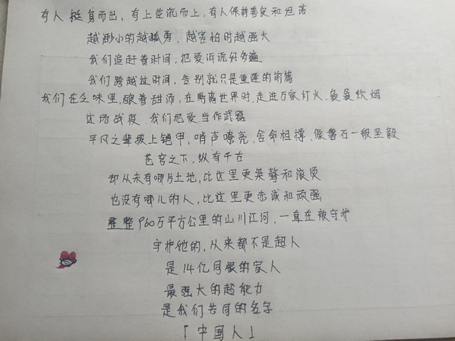 有人挺身而出，有上坐流而上，有人保持善良和担当
越渺小的越勇，越害怕时越强大
我们追赶着时间，把爱浓缩分多遍
我们跨越过时间，告别就只是重逢的前篇
我们在乏味里，酿着甜酒，在野离世界时，走进万家灯火，袅袅炊烟
这场战疫，我们把爱当作武器
平凡之辈披上铠甲，哨声嘹亮，舍命相撑，像磐石一般坚毅
苍穹之下，纵有千古
却从未有哪片土地，比这里更英勇和滚烫
也没有哪儿的人，比这里更忠诚和顽强
整整960万平方公里的山川江河，一直在被守护
守护他的，从来都不是超人
是14亿同胞的家人
最强大的超能力
是我们共同的名字
「中国人」